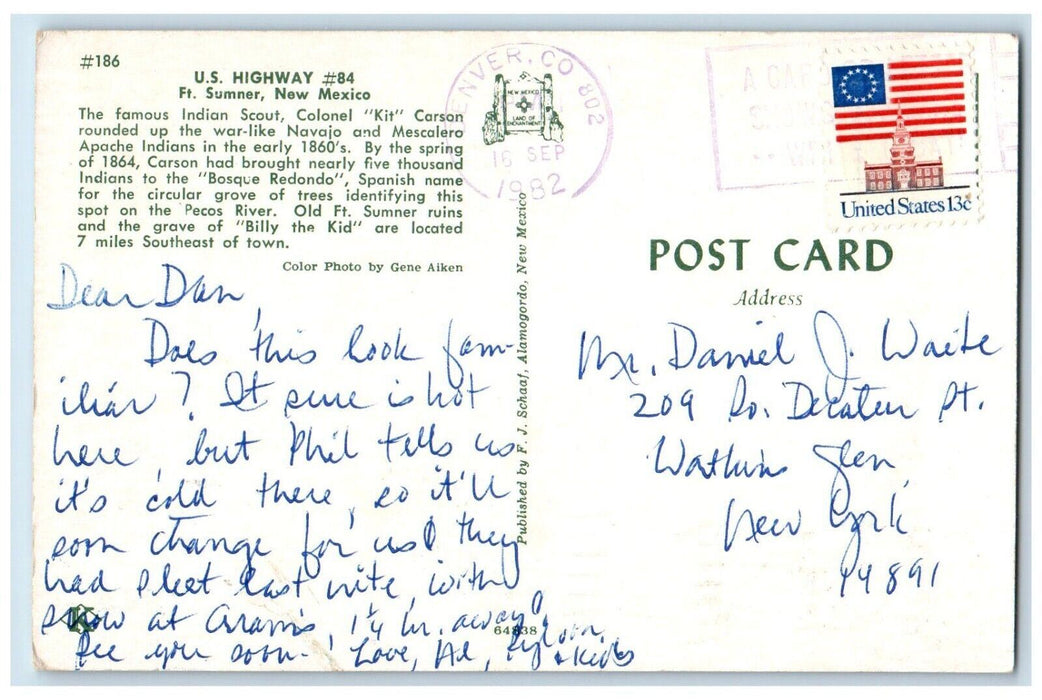 #186
U.S. HIGHWAY #84
Ft. Sumner, New Mexico
The famous Indian Scout, Colonel "Kit" Carson
rounded up the war-like Navajo and Mescalero
Apache Indians in the early 1860's. By the spring
of 1864, Carson had brought nearly five thousand
Indians to the "Bosque Redondo", Spanish name
for the circular grove of trees identifying this
spot on the Pecos River. Old Ft. Sumner ruins
and the grave of "Billy the Kid" are located
7 miles Southeast of town.
Color Photo by Gene Aiken
Dear Dan,
Does this look fam-
iliar? It sure is hot
here, but Phil tells us
it's cold there, so it'll
soon change for us! They
had sleet last nite, with
snow at 1¼ hr. away!
See you soon. Love, Al,
& kids
64838
Published by F. J. Schaaf, Alamogordo, New Mexico
DENVER, CO 802
NEW MEXICO
LAND OF
ENCHANTMENT
PM
16 SEP
1982
A CAR
United States 13c
POST CARD
Address
Mr. Daniel J. Waite
209 So. Decatur St.
Watkins Glen,
New York
14891